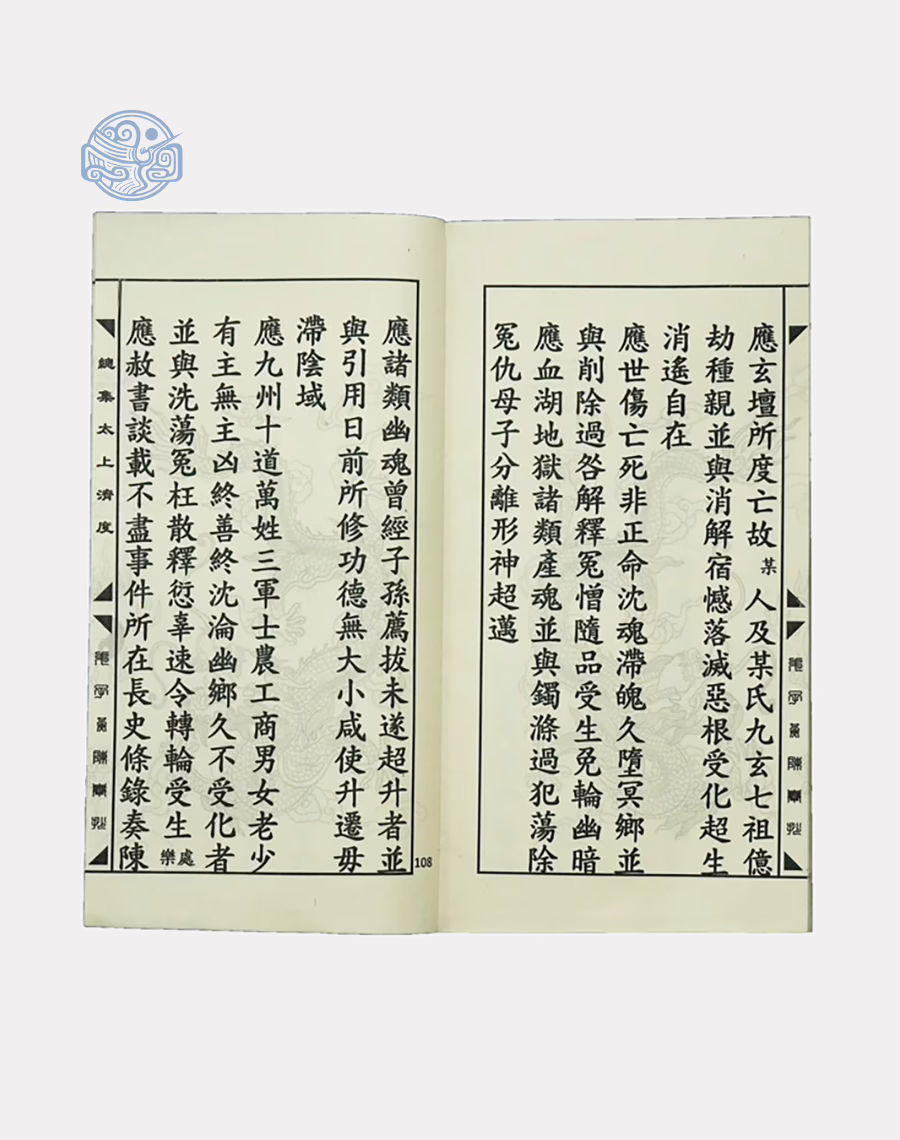 應玄壇所度亡故某人及某氏九玄七祖億
劫種親並與消解宿憾落滅惡根受化超生
消遙自在
應世傷亡死非正命沈魂滯魄久墮冥鄉並
與削除過咎解釋冤憎隨品受生免輪幽暗
應血湖地獄諸類產魂並與蠲滌過犯蕩除
冤仇母子分離形神超邁
應諸類幽魂曾經子孫薦拔未遂超升者並
與引用日前所修功德無大小咸使升遷毋
滯陰域
應九州十道萬姓三軍士農工商男女老少
有主無主凶終善終沈淪幽鄉久不受化者
並與洗蕩冤枉散釋愆辜速令轉輪受生處樂
應赦書談載不盡事件所在長史條錄奏陳
總集太上濟度
108